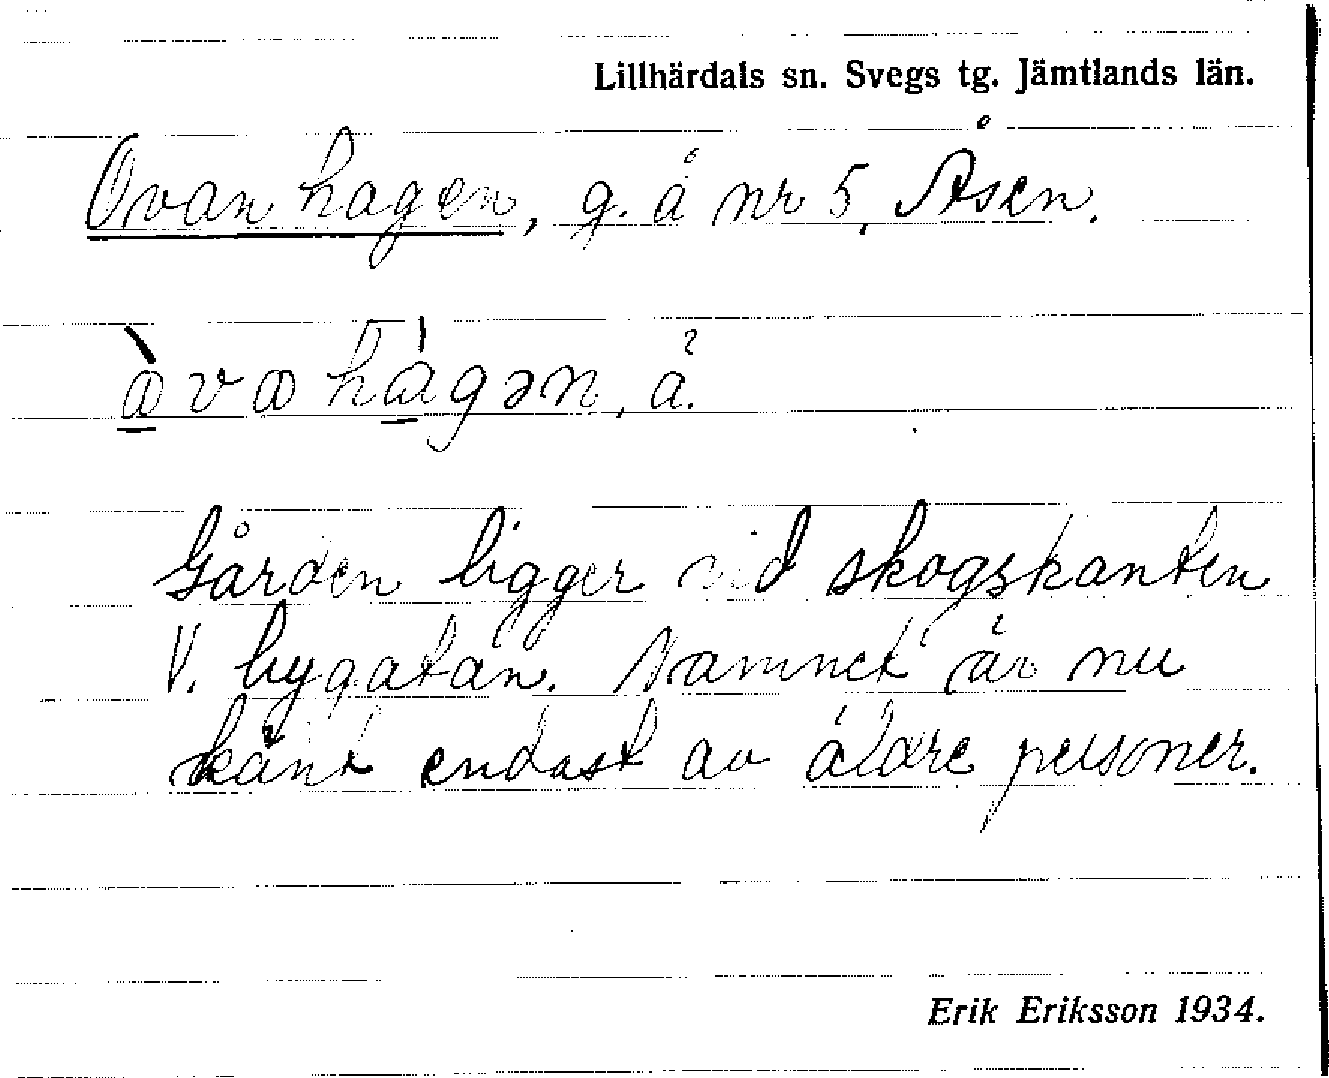 Lillhärdals sn. Svegs tg. Jämtlands län.
Ovanhagen, g. å nr 5, Åsen.
å.
Gården ligger vid skogskanten
V. bygatan. Namnet är nu
känt endast av äldre personer.
Erik Eriksson 1934.